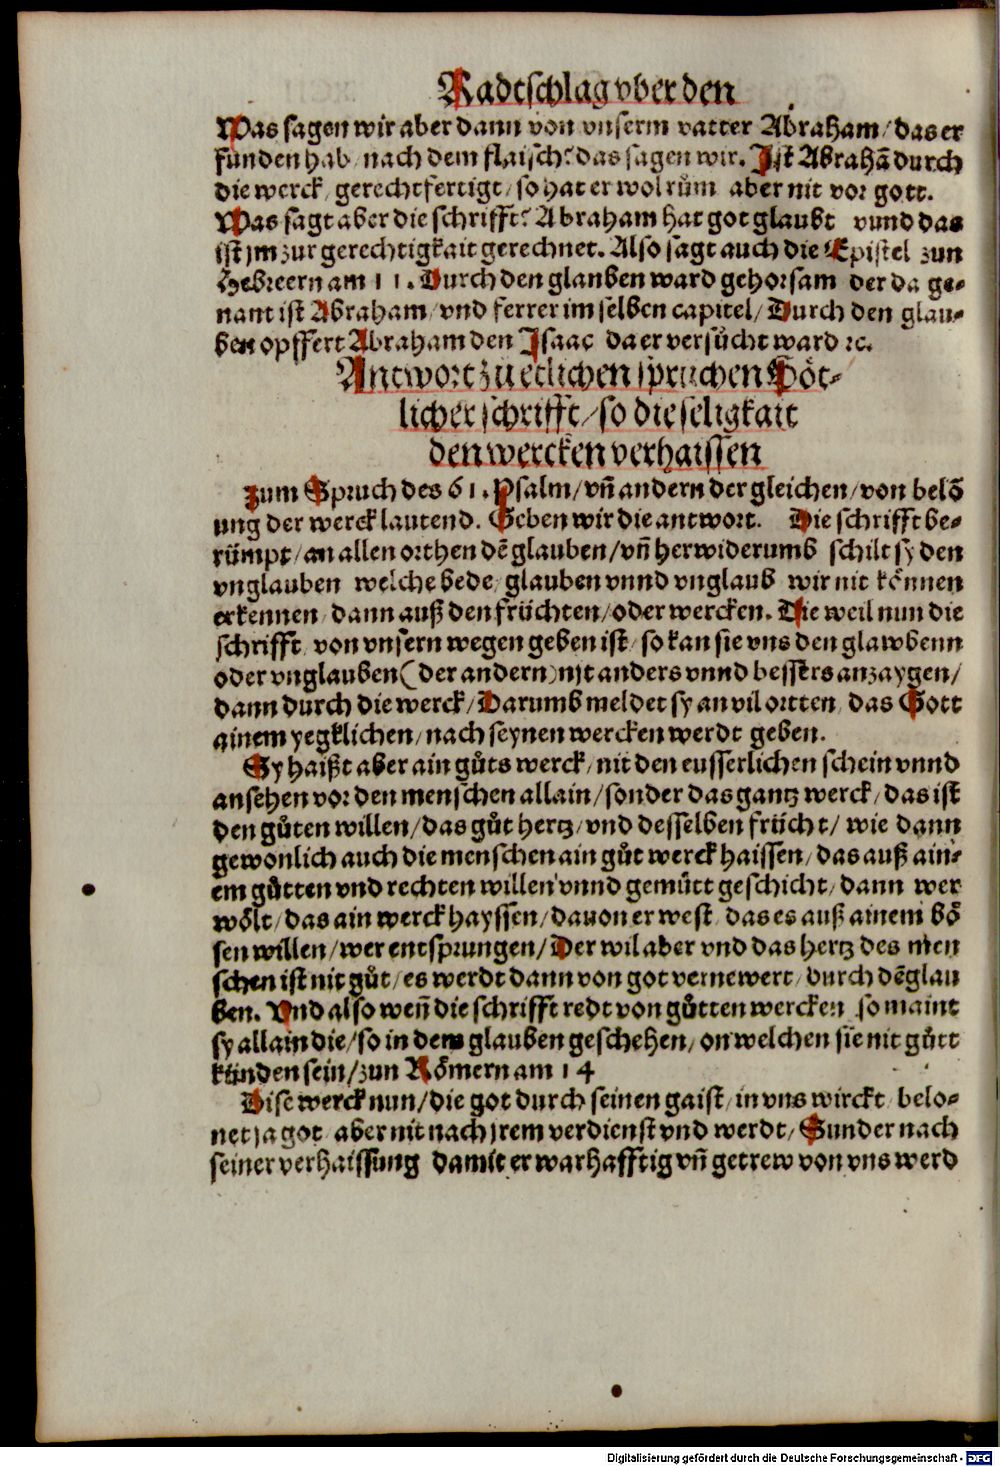 Radtschlag vber den
Was sagen wir aber dann von vnserm vatter Abraham/ das er
funden hab/ nach dem flaisch? das sagen wir. Ist Abrahā durch
die werck/ gerechtfertigt/ so hat er wol rům aber nit vor gott.
Was sagt aber die schrifft? Abraham hat got glaubt vnnd das
ist jm zur gerechtigkait gerechnet. Also sagt auch die Epistel zun
Hebreern am 11. Durch den glauben ward gehorsam der da ge-
nant ist Abraham/ vnd ferrer im selben capitel/ Durch den glau-
ben opffert Abraham den Isaac da er versůcht ward ꝛc.
Antwort zů etlichen sprüchen Göt-
licher schrifft/ so die seligkait
den wercken verhaissen
Zum Spruch des 61. Psalm/ vñ andern der gleichen/ von belō
ung der werck lautend. Geben wir die antwort. Die schrifft be-
rümpt/ an allen orthen dē glauben/ vñ herwiderumb schilt sy den
vnglauben welche bede/ glauben vnnd vnglaub wir nit können
erkennen/ dann auß den früchten/ oder wercken. Die weil nun die
schrifft/ von vnsern wegen geben ist/ so kan sie vns den glawbenn
oder vnglauben (der andern) nit anders vnnd bessers anzaygen/
dann durch die werck/ Darumb meldet sy an vil ortten/ das Gott
ainem yegklichen/ nach seynen wercken werdt geben.
Sy haißt aber ain gůts werck/ nit den eusserlichen schein vnnd
ansehen vor den menschen allain/ sonder das gantz werck/ das ist
den gůten willen/ das gůt hertz/ vnd desselben frücht/ wie dann
gewonlich auch die menschen ain gůt werck haissen/ das auß ain-
em gůtten vnd rechten willen vnnd gemůtt geschicht/ dann wer
wölt/ das ain werck hayssen/ dauon er west/ das es auß ainem bö
sen willen/ wer entsprungen/ Der wil aber vnd das hertz des men
schen ist nit gůt/ es werdt dann von got vernewert/ durch dē glau
ben. Vnd also weñ die schrifft redt von gůtten wercken so maint
sy allain die/ so in dem glauben geschehen/ on welchen sie nit gůtt
künden sein/ zun Römern am 14
Dise werck nun/ die got durch seinen gaist/ in vns wirckt/ belo-
net ja got aber nit nach jrem verdienst vnd werdt/ Sunder nach
seiner verhaissung damit er warhafftig vñ getrew von vns werd
Digitalisierung gefördert durch die Deutsche Forschungsgemeinschaft - DFG